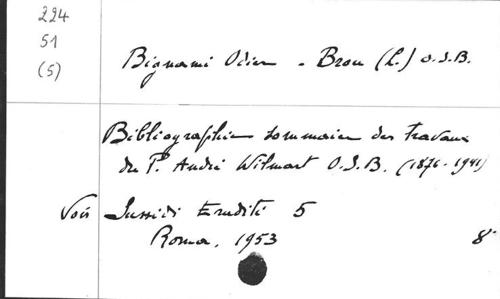 224
51
(5)
Bignami Odier - Brou (L.) O.S.B.
Bibliographie sommaire des travaux
du P. André Wilmart O.S.B. (1876-1941)
Voir Sussidi Eruditi 5
Roma, 1953 8°